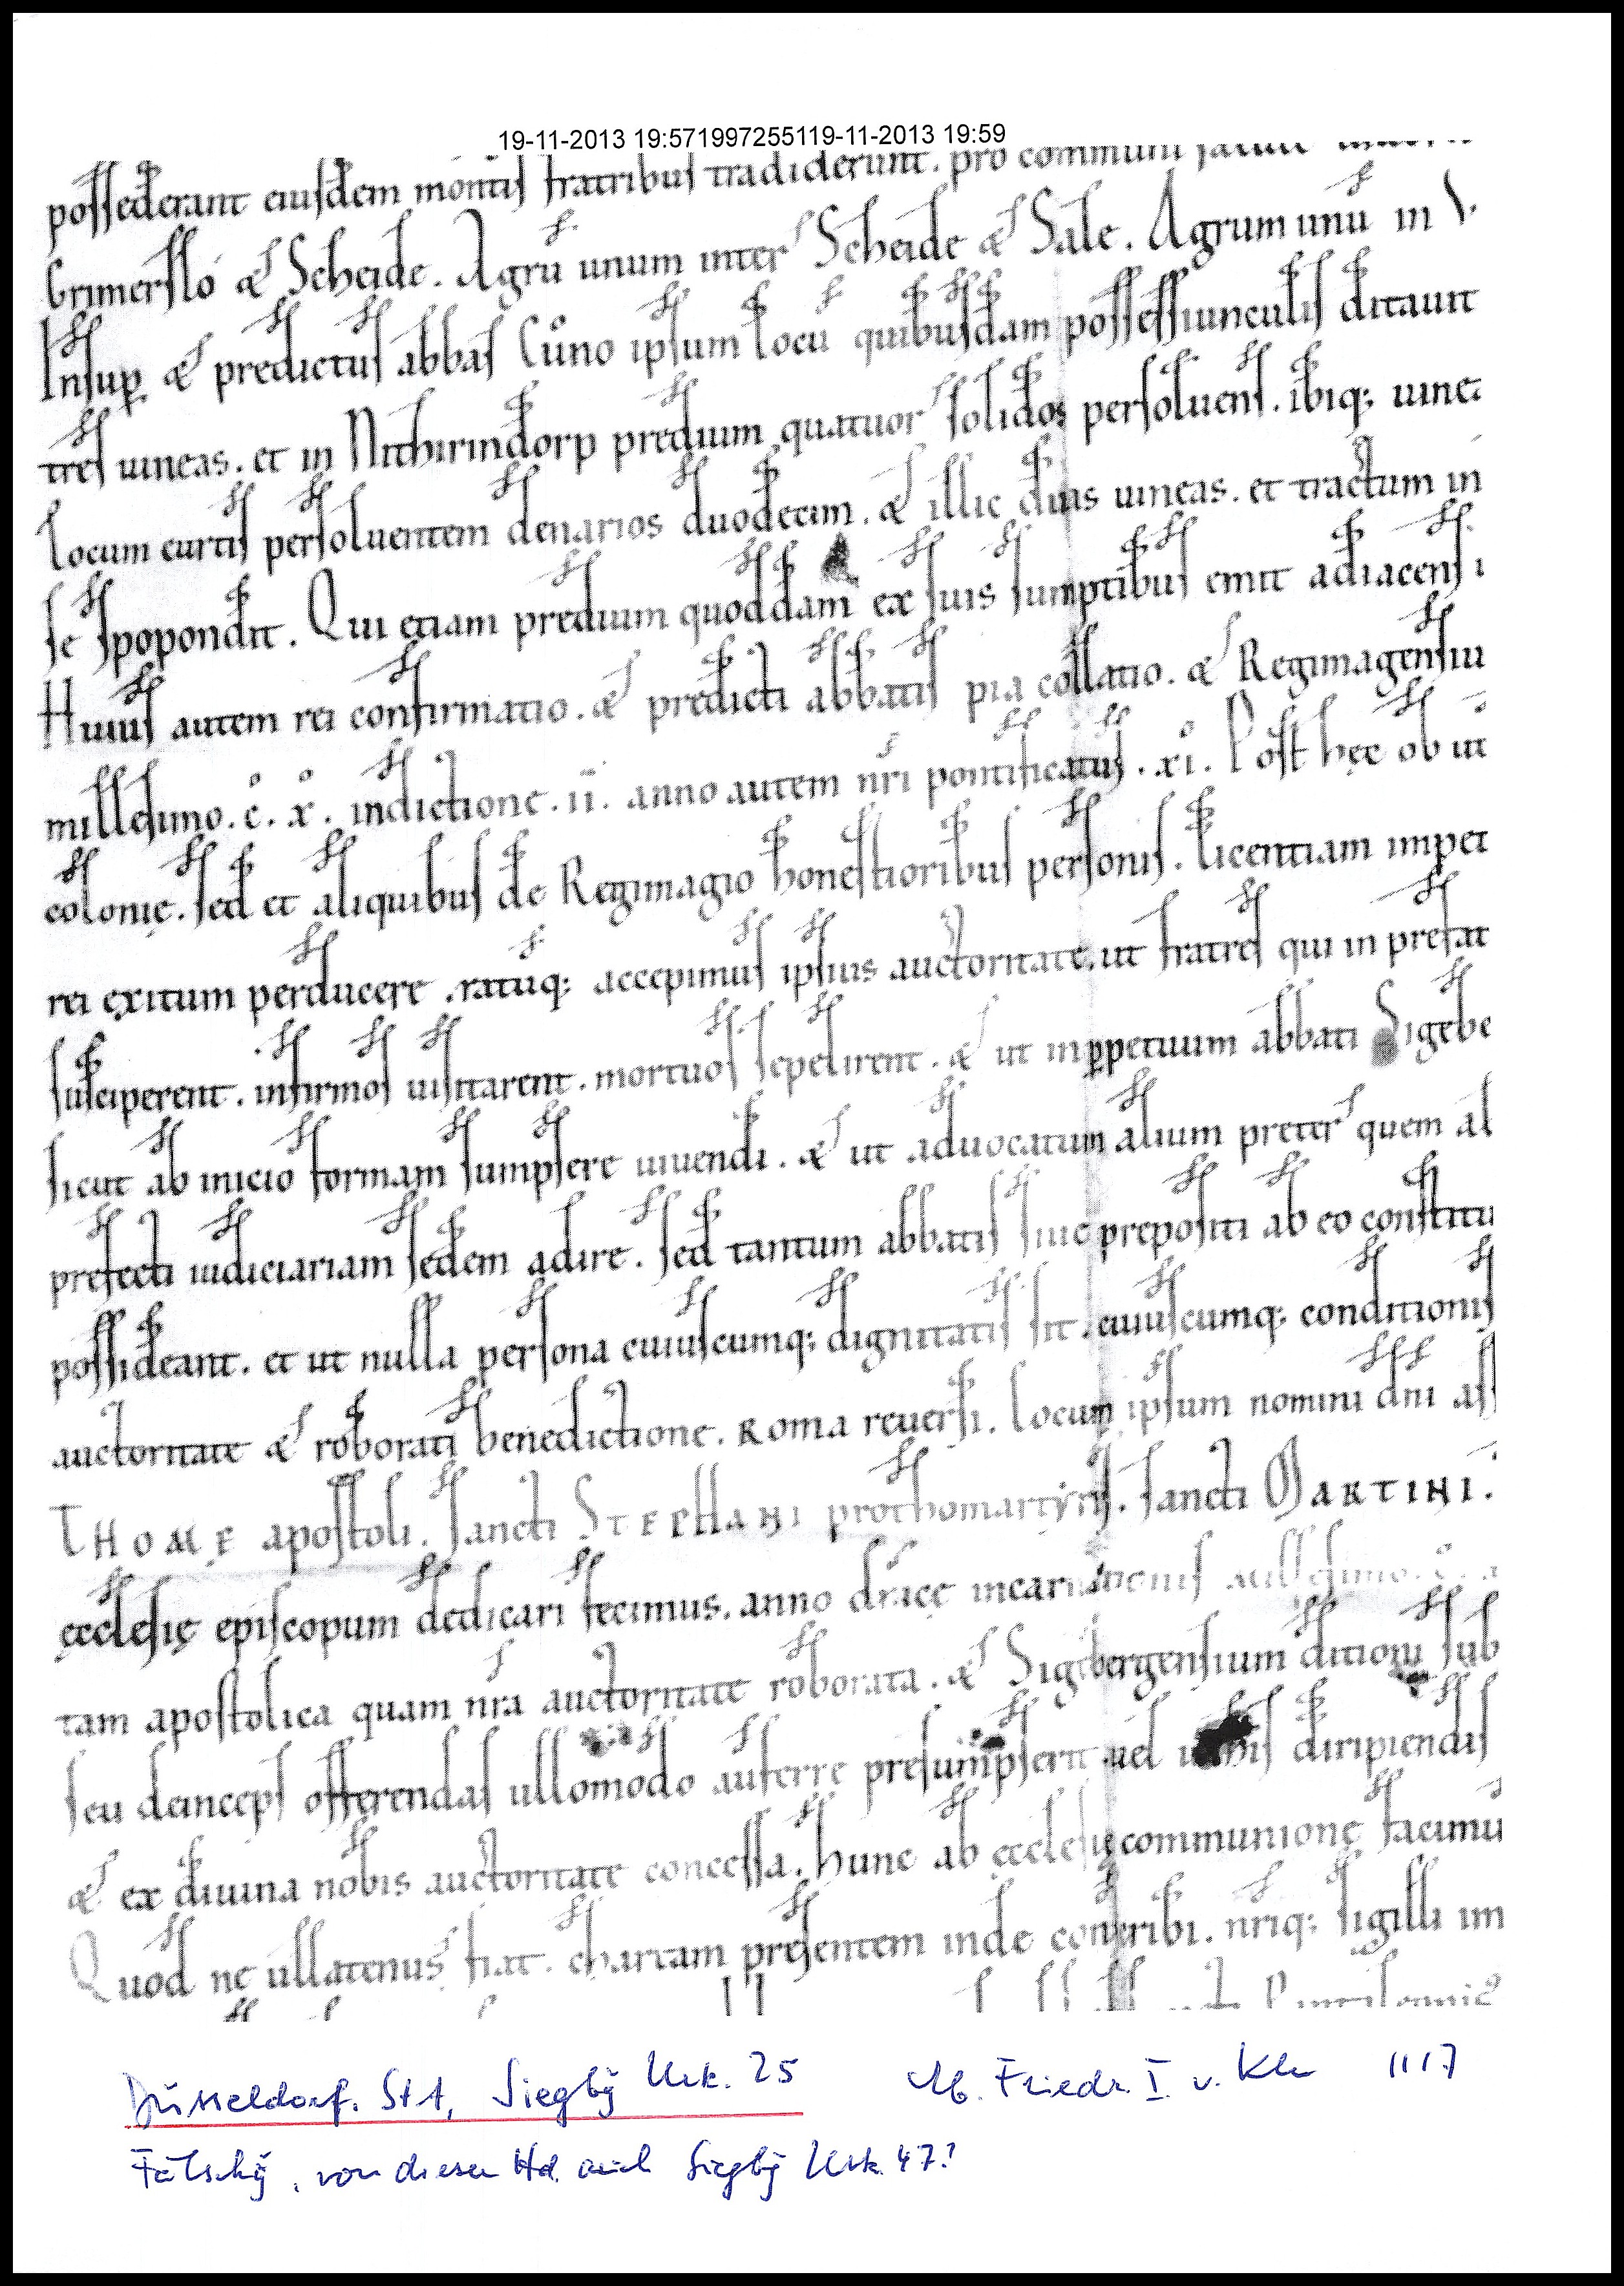 19-11-2013 19:571997255119-11-2013 19:59
possederant eiusdem montis fratribus tradiderunt. pro communi
Grimerslo & Scheide. Agrū unum inter Scheide & Sale. Agrum unū in
Insup & predictus abbas Cůno ipsum locū quibusdam possessiunculis ditauit
tres uineas. et in Nithirindorp predium quatuor solidos persoluens. ibiq; uine
Locum curtis persoluentem denarios duodecim. & illic duas uineas. et tractum in
se spopondit. Qui etiam predium quoddam ex suis sumptibus emit adiacens
Huius autem rei confirmatio. & predicti abbatis pia collatio. & Regimagensiū
millesimo. c̊. x̊. indictione. ii. anno autem nr̄i pontificatus. xi. Post hęc ob
colonię. sed et aliquibus de Regimagio honestioribus personis. licentiam impet
rei exitum perducere. ratūq; accepimus ipsius auctoritate. ut fratres qui in prefat
susciperent. infirmos uisitarent. mortuos sepelirent. & ut inp̱petuum abbati Sigebe
sicut ab inicio formam sumpsere uiuendi. & ut aduocatum alium preter quem al
prefecti iudiciariam sedem adire. sed tantum abbatis siue prepositi ab eo constitu
possideant. et ut nulla persona cuiuscumq; dignitatis sit. cuiuscumq; conditionis
auctoritate & roborati benedictione. Roma reuersi. locum ipsum nomini dn̄i
THOMĘ apostoli. sancti STEPHANI prothomartyris. sancti MARTINI.
ęcclesię episcopum dedicari fecimus. anno dn̄icę incarnationis millesimo. c̊.
tam apostolica quam nr̄a auctoritate roborata. & Sigebergensium ditioni sub
seu deinceps offerendas ullomodo auferre presumpserit uel diripiendis
& ex diuina nobis auctoritate concessa. hunc ab ęcclesię communione facimū
Quod ne ullatenus fiat. chartam presentem inde conscribi. nr̄iq; sigilli im
Düsseldorf. StA, Siegbg Urk. 25 Eb. Friedr. I. v. Kln 1117
Fälschg, von dieser Hd. auch Siegbg Urk. 47?